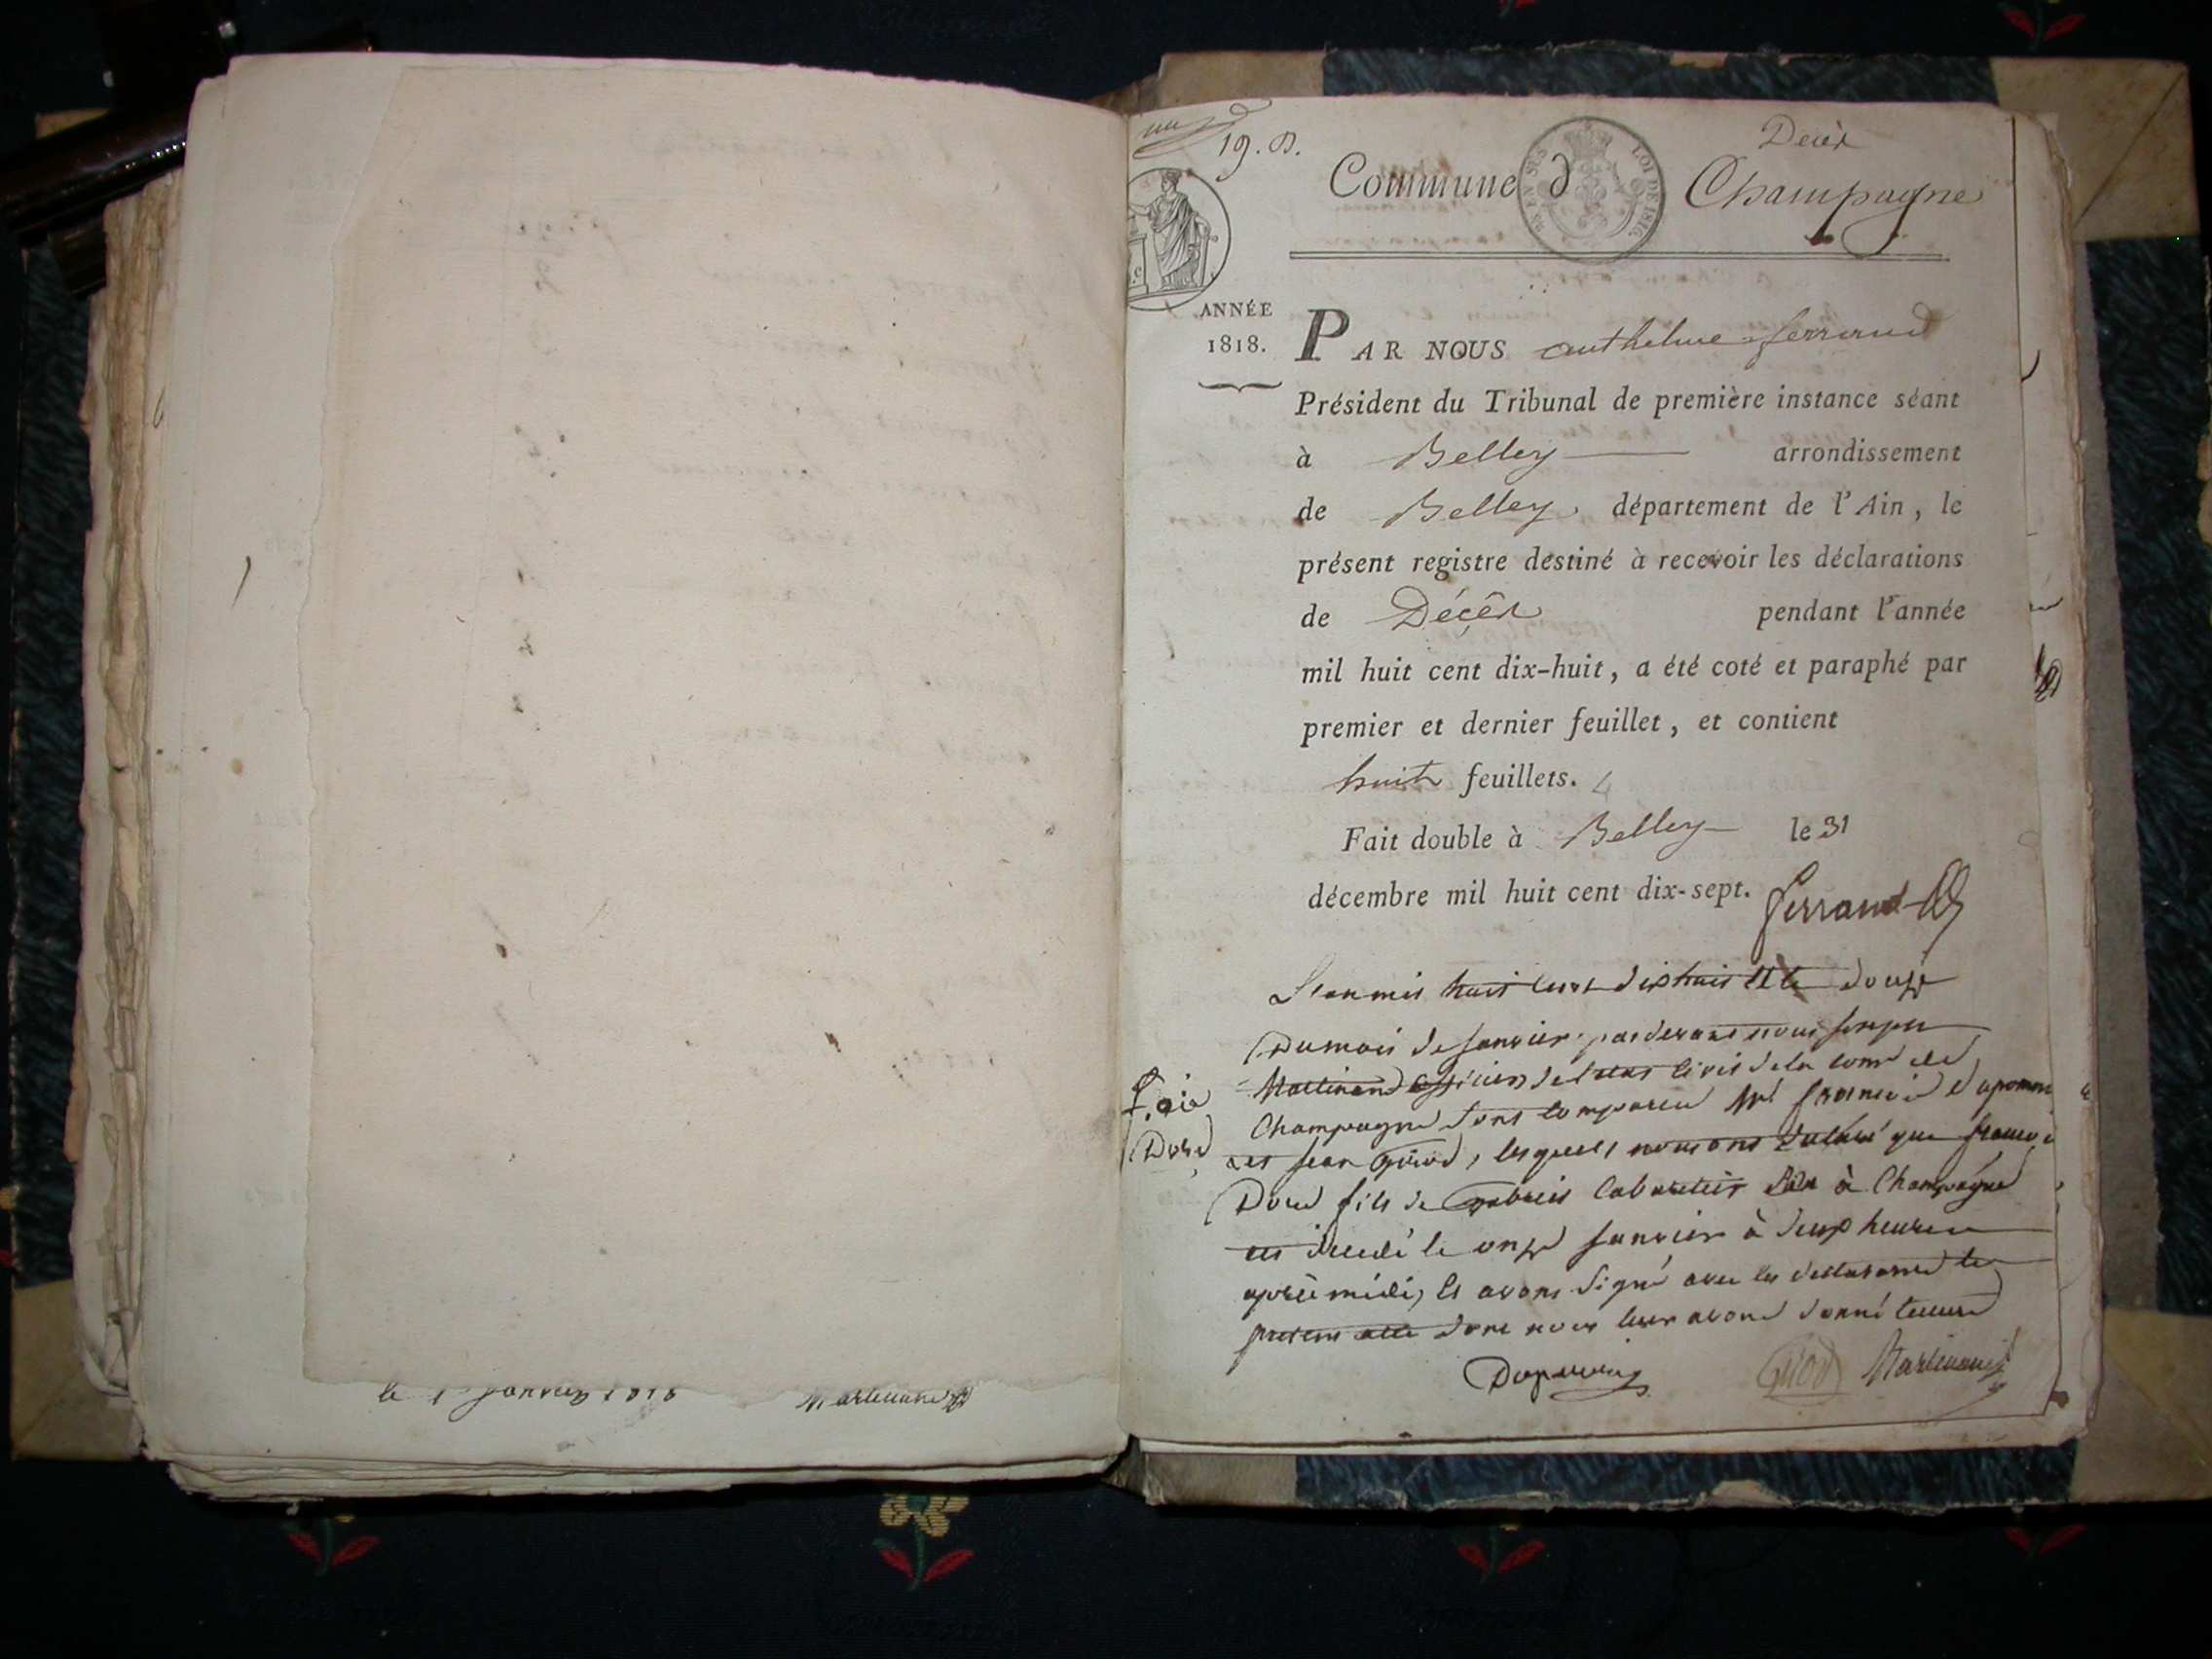 le 1 janvier 1818
19.
Décès
Commune d Champagne
EN SUS
LOI DE 1816.
ANNÉE
1818.
PAR NOUS anthelme ferrand
Président du Tribunal de première instance séant
à Belley arrondissement
de Belley, département de l'Ain, le
présent registre destiné à recevoir les déclarations
de Décès pendant l'année
mil huit cent dix-huit, a été coté et paraphé par
premier et dernier feuillet, et contient
huit feuillets. 4
Fait double à Belley le 31
décembre mil huit cent dix-sept. ferrand
L'an mil huit cent dix huit et le douze
Du mois de janvier pardevant nous
Martinand officier de l'etat civil de la
Champagne sont comparu francois
et jean Guiod, lesquels nous ont declaré que francoi
Dord fils de gabriel Cabaretier à Champagne
est decedé le onze janvier à deux heures
après midi, et avons signé avec les
present acte dont nous leur avons donné lecture
Guiod Martinand